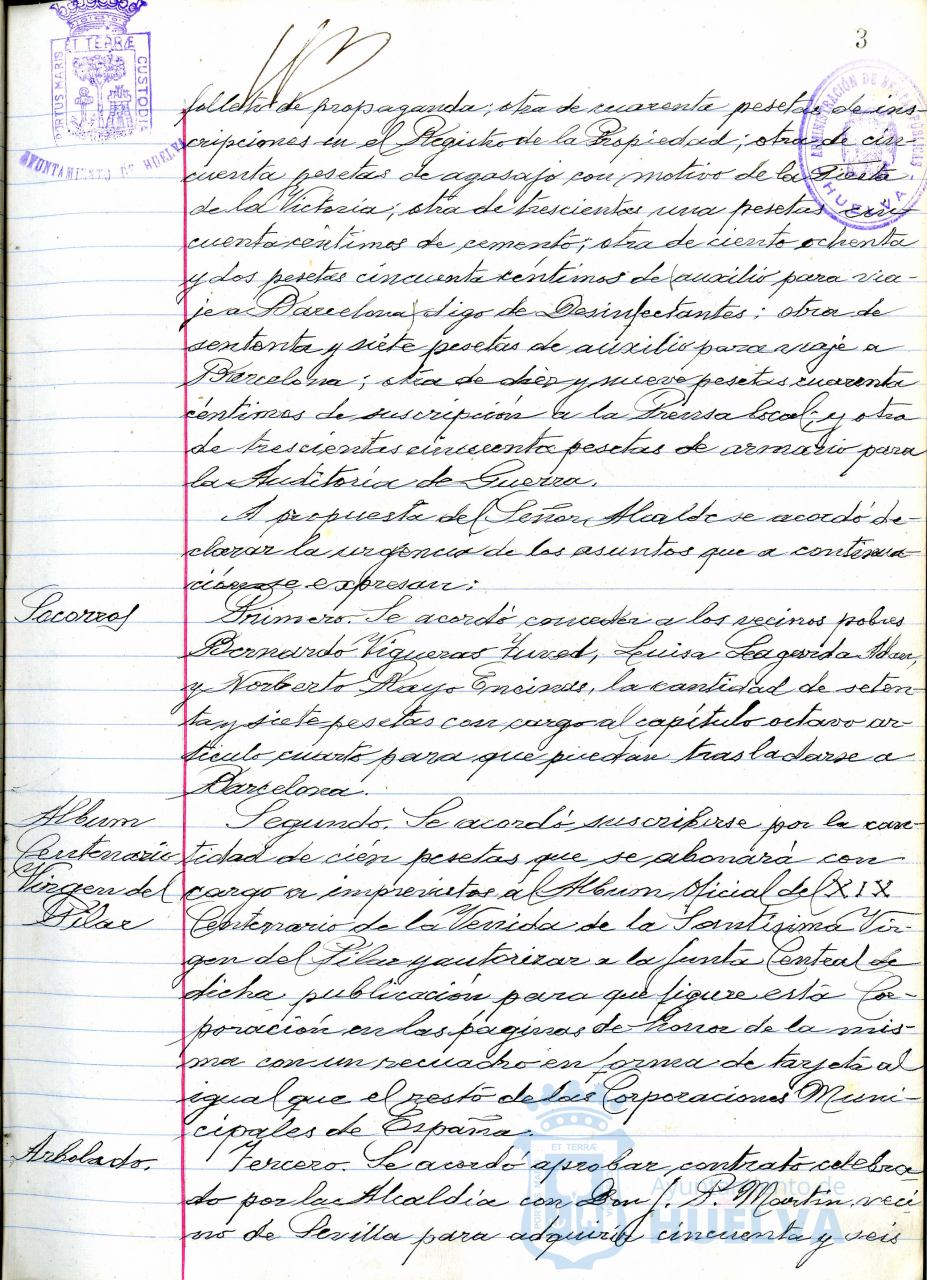 3
ET TERRÆ
PORTUS MARIS
CUSTODIA
AYUNTAMIENTO DE HUELVA
HUELVA
folleto de propaganda; otra de cuarenta pesetas de ins-
cripciones en el Registro de la Propiedad; otra de cin-
cuenta pesetas de agasajo con motivo de la Fiesta
de la Victoria; otra de trescientas una pesetas cin-
cuenta céntimos de cemento; otra de ciento ochenta
y dos pesetas cincuenta céntimos de (auxilio para via-
je a Barcelona) digo de Desinfectantes; otra de
sententa y siete pesetas de auxilio para viaje a
Barcelona; otra de diez y nueve pesetas cuarenta
céntimos de suscripción a la Prensa local; y otra
de trescientas cincuenta pesetas de armario para
la Auditoría de Guerra.
A propuesta del Señor Alcalde se acordó de-
clarar la urgencia de los asuntos que a continua-
ción se expresan:
Socorros
Primero. Se acordó conceder a los vecinos pobres
Bernardo Vigueras Luisa
y Norberto Rayo Encinas, la cantidad de seten-
ta y siete pesetas con cargo al capítulo octavo ar-
tículo cuarto para que puedan trasladarse a
Barcelona.
Album
Centenario
Virgen del
Pilar
Segundo. Se acordó suscribirse por la can-
tidad de cién pesetas que se abonará con
cargo a imprevistos al Album Oficial del XIX
Centenario de la Venida de la Santísima Vir-
gen del Pilar y autorizar a la Junta Central de
dicha publicación para que figure está Cor-
poración en las páginas de honor de la mis-
ma con un recuadro en forma de tarjeta al
igual que el resto de las Corporaciones Muni-
cipáles de España.
Arbolado.
Tercero. Se acordó aprobar contrato celebra-
do por la Alcaldía con Don J. P. Martín, veci
no de Sevilla para adquirir cincuenta y seis
ET TERRÆ
Ayuntamiento de
HUELVA